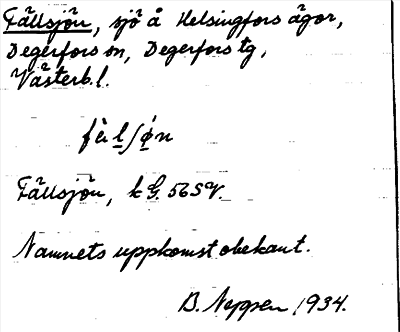 Fällsjön, sjö å Helsingfors ägor,
Degerfors sn, Degerfors tg,
Västerb. l.
Fällsjön, k G. 56 SV.
Namnets uppkomst obekant.
B. 1934.